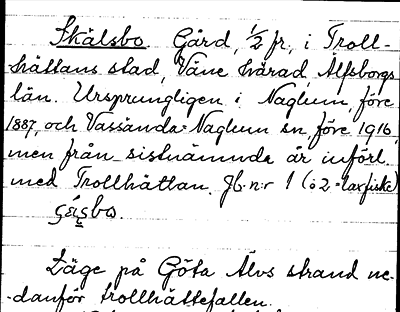 Skålsbo. Gård, 1/2 fr, i Troll-
hättans stad, Väne härad, Älfsborgs
län. Ursprungligen i Naglum, före
1887, och Vassända-Naglum sn, före 1916,
men från sistnämnda år införl.
med Trollhättan. Jb.n:r 1 (o 2 = laxfiske)
Läge på Göta Älvs strand ne-
-danför trollhättefallen.